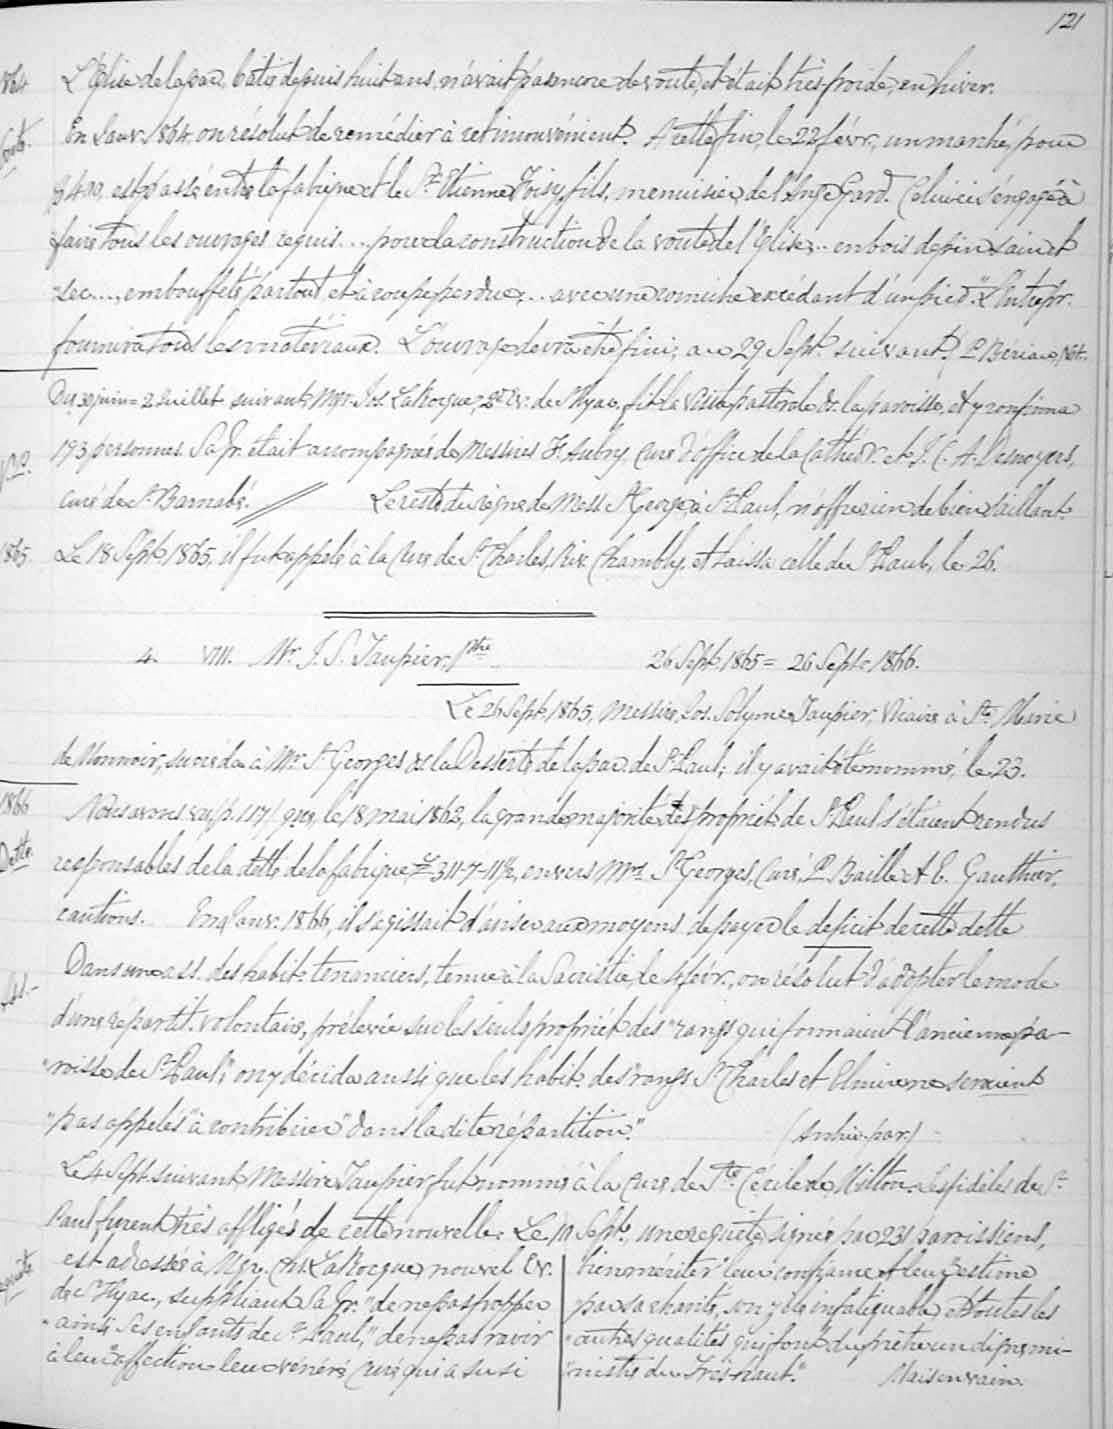 121
1864 L'Eglise de la par., bâtie depuis huit ans, n'avait pas encore de voute, et était très froide, en hiver.
En Janv. 1864, on résolut de remédier à cet inconvénient. A cette fin, le 22 févr., un marché, pour
$400, est passé entre la fabrique et le Sr Etienne Voisy, fils, menuisier, de l'Ange Gard. Celui-ci s'engage "à
"faire tous les ouvrages requis.... pour la construction de la voute de l'Eglise... en bois de pin sain et
"sec...., embouffeté partout et à coupe perdue,... avec une corniche excédant d'un pied." L'Entepr.
fournira tous les matériaux. L'ouvrage devra être fini, au 29 Sept. suivant. P. Bériau, Not.
Du 30 juin = 2 Juillet suivant, Mgr. Jos. LaRocque, 2d Ev. de St Hyac. fit la visite pastorale de la paroisse, et y confirma
193 personnes. Sa Gr. était accompagnée de Messires F. Aubry, Curé d'office de la Cathéd. et J. C. A. Desnoyers,
curé de St Barnabé. // Le reste du règne de Mess. St George, à St Paul, n'offre rien de bien saillant.
1865 Le 18 Sept. 1865, il fut appelé à la Cure de St Charles, Riv. Chambly, et laissa celle de St Paul, le 26.
4. VIII. Mr. J. S. Taupier, Ptre 26 Sept. 1865 = 26 Sept. 1866.
Le 26 Sept. 1865, Messire Jos. Solyme Taupier, Vicaire à Ste Marie
de Monnoir, succéda à Mr. St Georges à la Desserte de la par. de St Paul; il y avait été nommé, le 23.
1866 Nous avons vu, (p. 117) que, le 18 mai 1862, la grande majorité des propriét. de St Paul s'étaient rendus
Dette responsables de la dette de la fabrique, £311-7-11½, envers Mrs St Georges, Curé, P. Baille et E. Gauthier,
cautions. En Janv. 1866, il s'agissait d'aviser aux moyens de payer le deficit de cette dette
Ass. Dans une ass. des habit. tenanciers, tenue à la Sacristie, le 4 févr., on résolut d'adopter le mode
d'une répartit. volontaire, prélevée sur les seuls propriét. des "rangs qui formaient l'ancienne pa-
"roisse de St Paul;" on y décida aussi que les habit. des "rangs St Charles et Elmire ne seraient
"pas appelés "à contribuer" dans la dite répartition." (Archiv. par.)
Le 4 Sept. suivant, Messire Taupier fut nommé à la Cure de Ste Cécile de Milton. Les fidèles de St
Paul furent très affligés de cette nouvelle. Le 10 Sept., une requête, signée par 231 paroissiens,
requête est adressée à Mgr. Chs. LaRocque, nouvel Ev.
de St Hyac., suppliant Sa Gr. "de ne pas frapper
"ainsi Ses enfants de St Paul," de ne pas ravir
à leur "affection leur vénéré Curé qui a su si
"bien mériter" leur confiance et leur "estime
"par sa charité, son zèle infatiguable, et toutes les
"autres qualités qui font du prêtre un digne mi-
"nistre du Très-haut." Mais en vain.